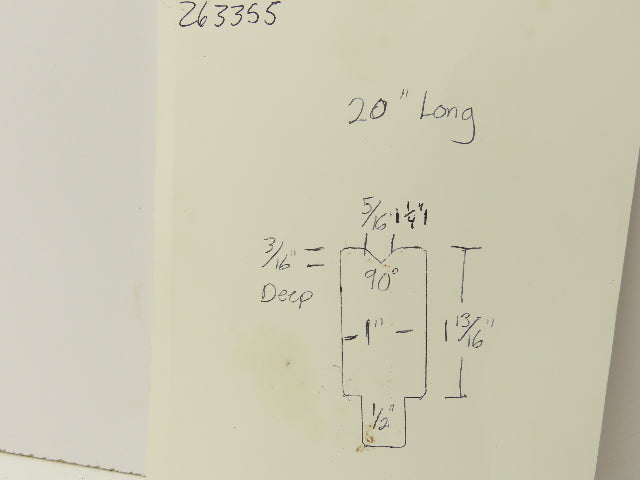 263355
20" Long
5/16" 1 1/4"
3/16"
Deep
90°
1"
1 13/16"
1/2"